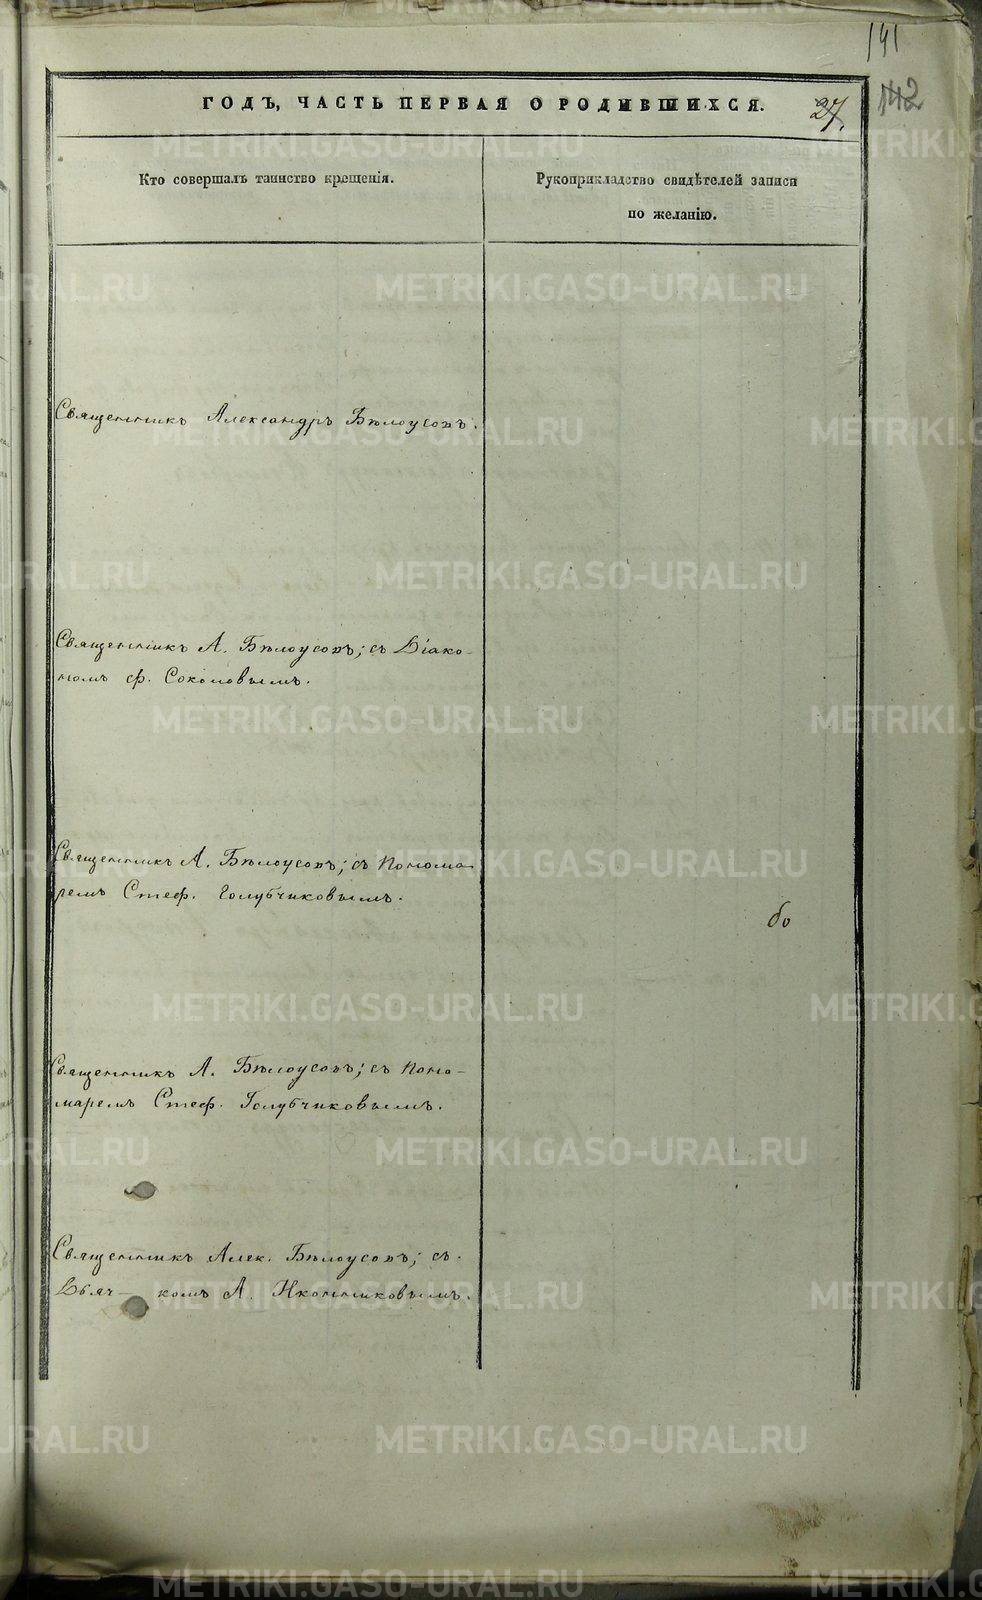 141
142
ГОДЪ, ЧАСТЬ ПЕРВАЯ О РОДИВШИХСЯ.
27.
Кто совершалъ таинство крещенія.
Рукоприкладство свидѣтелей записи
по желанію.
Священникъ Александръ Бѣлоусовъ.
Священникъ А. Бѣлоусовъ; съ Діако-
номъ Ф. Соколовымъ.
Священникъ А. Бѣлоусовъ; съ Понома-
ремъ Стеф. Голубчиковымъ.
бо
Священникъ А. Бѣлоусовъ; съ Поно-
маремъ Стеф. Голубчиковымъ.
Священникъ Алек. Бѣлоусовъ; съ
Дьяч- комъ А. Иконниковымъ.
METRIKI.GASO-URAL.RU